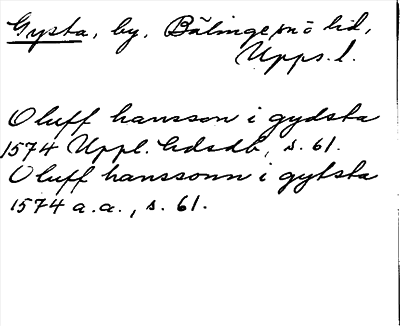 Gysta, by, Bälinge sn o hd,
Upps. l.
Oluff hansson i gydsta
1574 Uppl. hdsdb, s. 61.
Oluff hanssonn i gytsta
1574 a.a., s. 61.